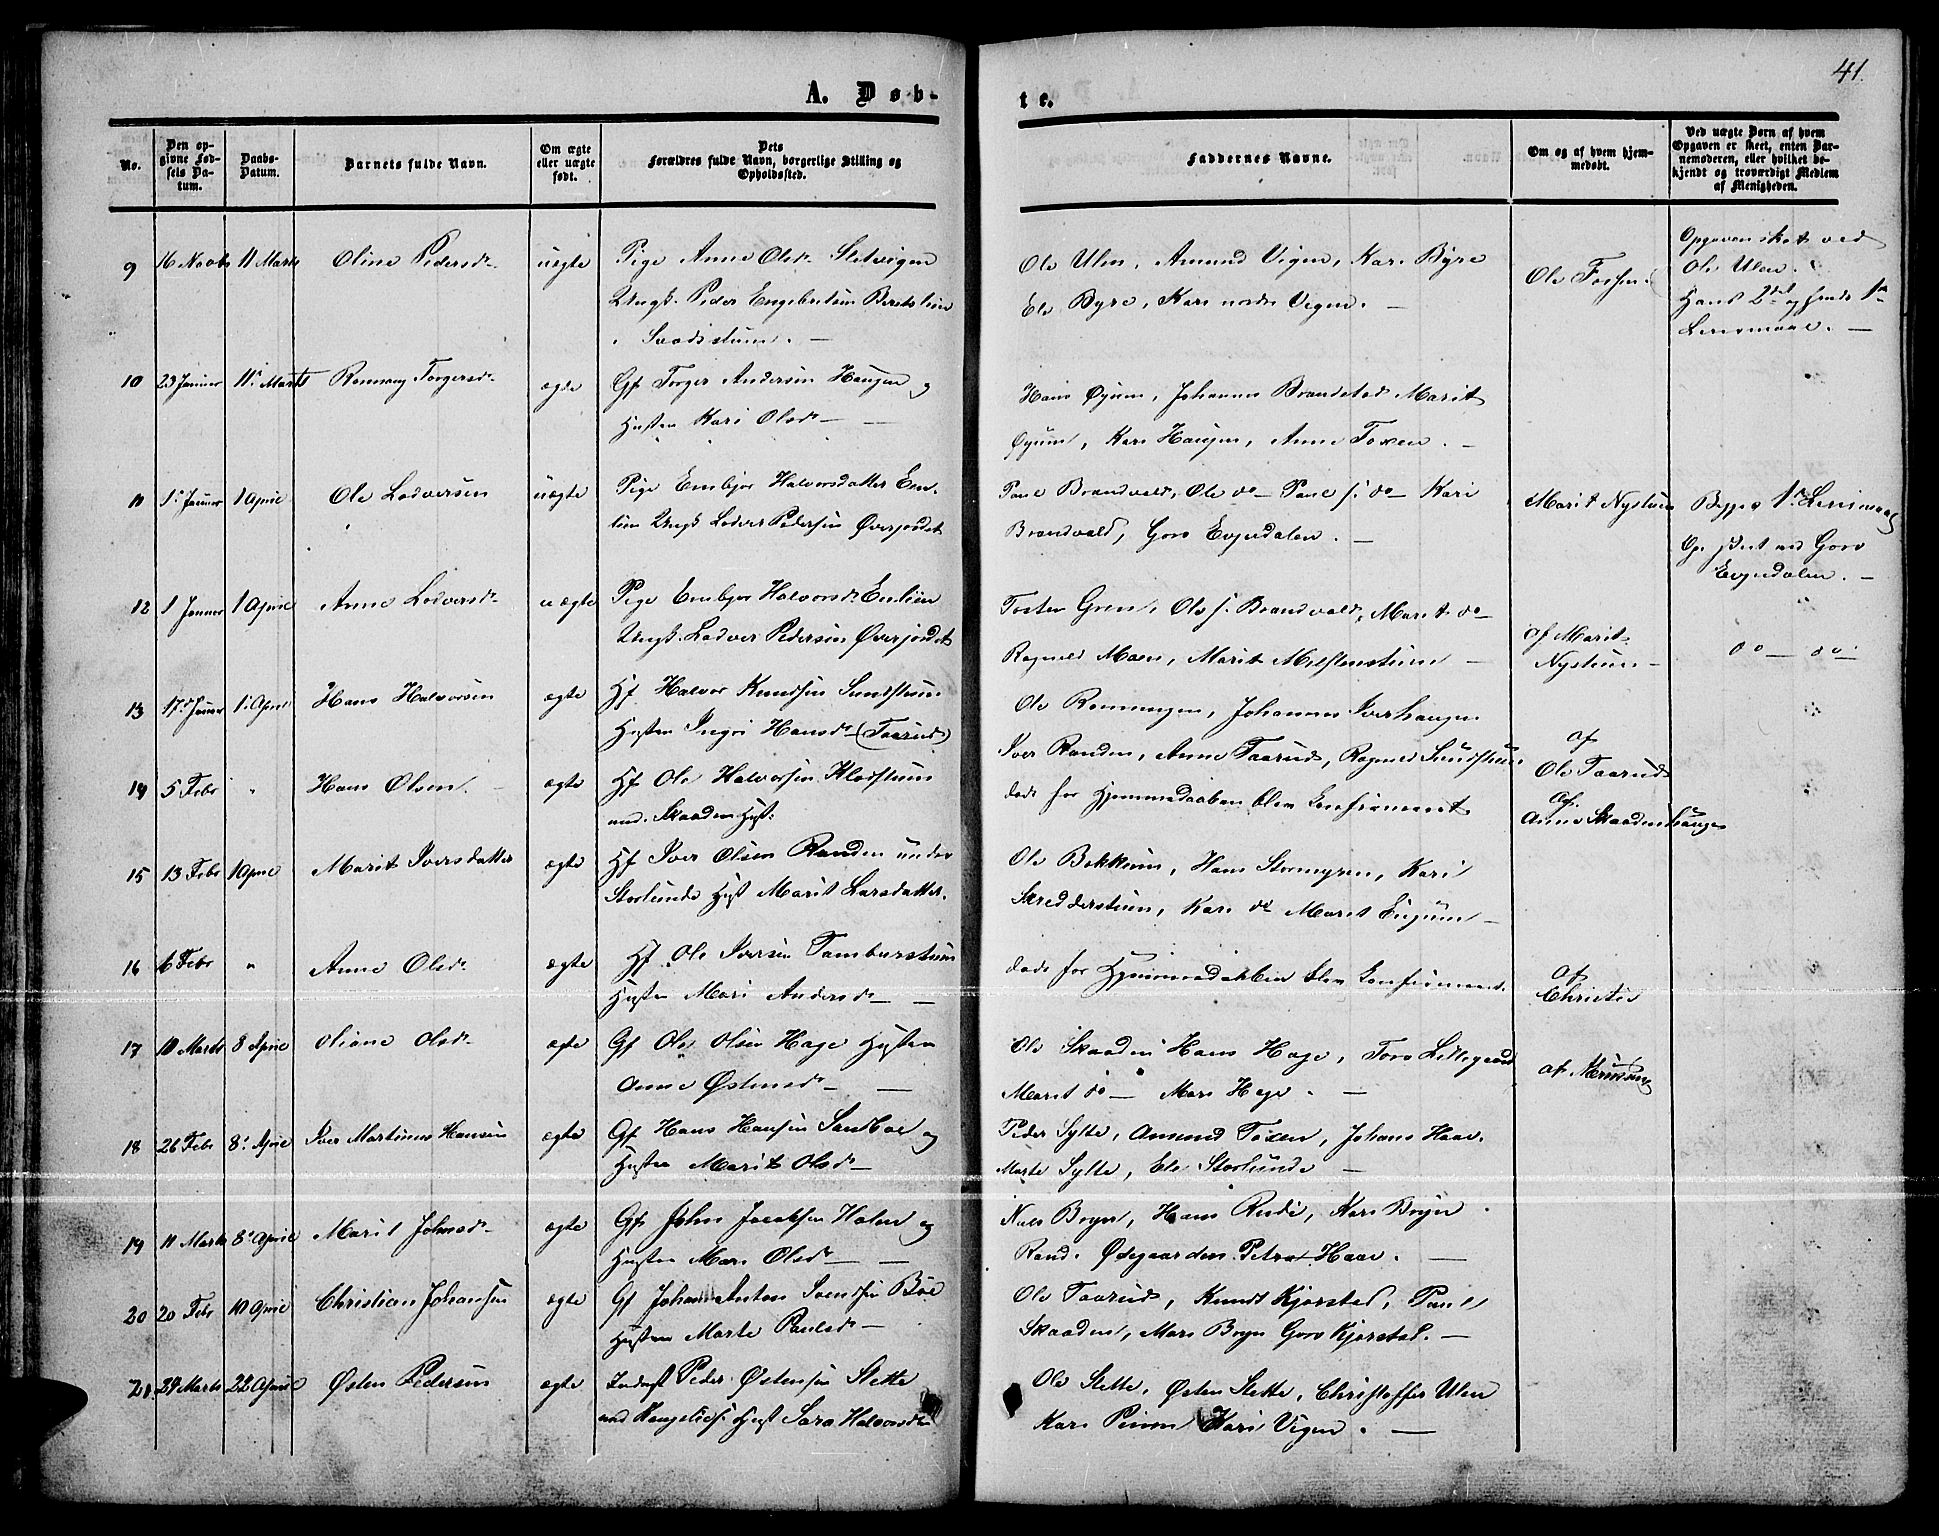 41.
A. Døb-
te.
No.
Den op-
givne Fød-
sels Da-
tum.
Daabs-
Datum.
Barnets fulde Navn.
Om ægte
eller uægte
født.
Dets
Forældres fulde Navn, borgerlige Stilling og
Opholdssted.
Faddernes Navne.
Om og af hvem hjem-
medøbt.
Ved uægte Børn af hvem
Opgaven er skeet, enten Bar-
nemoderen, eller hvilket be-
kjendt og troværdigt Medlem
af Menigheden.
9 16 Novbr 11 Marts Oline Pedersdr uægte Pige Anne Olsdr Sletvigen
Ungk. Peder Engebretsen Bratlien
Ole Ulen, Amund Vigen, Kari Byre
Ole Byre, Kari nordre Vigen. —
Ole Fossen
Opgaven skét ved
Ole Ulen.
Hans 2det og hendes 1ste
Leiermaal. —
10 23 Januar 11 Marts Ronnaug Torgersdr ægte Gf Torger Andersen Haugen og
Hustru Kari Olsdr —
Hans Øyum, Johannes Brandstad Marit
Øyum, Kari Haugen, Anne Toxen. —
11 1 Januar 1 April Ole Lodversen uægte Pige Embjør Halvorsdatter Em-
lien Ungk Lodver Pedersen Øverjordet
Paul Brandvold, Ole do — Paul do — Kari
Brandvold, Goro Evjedalen. —
Marit Nystuen
Begges 1ste Leiermaal
Op. skeet ved Goro
Evjedalen. —
12 1 Januar 1 April Anne Lodversdr uægte Pige Embjør Halvorsdr Emlien
Ungk. Lodver Pedersen Øverjordet
Tosten Gren, Ole Brandvold, Marit do —
Ragnild Moen, Marit —
af Marit
Nystuen —
do — do —
13 17 Januar 1 April Hans Halvorsen ægte Hf Halvor Knudsen Sundstuen
Hustru Ingri Hansdr (Taarud)
Ole Rønningen, Johannes Iverhaugen
Iver Randen, Anne Taarud, Ragnild Sundstuen
af
Ole Taarud
14 5 Febr " Hans Olsen ægte Hf Ole Halvorsen Kladstuen
und. Skaaden Hust:
døde før Hjemmedaaben blev Confirmeret
af
Anne Skaadenhaugen
15 13 Febr 1 April Marit Iversdatter ægte Hf Iver Olsen Randen under
Storlunde Hust Marit Larsdatter.
Ole Bakkum, Hans Stormyren, Kari
Skredderstuen, Kari do Marit Øyum —
16 6 Febr " Anne Olsdr ægte Hf Ole Iversen Tamburstuen
Hustru Mari Andersdr —
døde før Hjemmedaaben blev Confirmeret.
af
Christie
17 10 Marts 8 April Oliane Olsdr ægte Gf Ole Olsen Hage Hustru
Anne Østensdr — —
Ole Skaaden Hans Hage, Tore Lillegaard
Marit do — Mari Hage. —
af
18 26 Febr 8 April Iver Martinus Hansen ægte Gf Hans Hansen Sandboe og
Hustru Marit Olsdr —
Peder Sylte, Amund Toxen, Johans Haae.
Marte Sylte, Ole Storlunde —
19 11 Marts 8 April Marit Johnsdr ægte Gf John Jacobsen Holen og
Hustru Mari Olsdr — —
Niels Boyn, Hans Rudi, Kari Boyn
Rand. Ødegaarden Petra Haae. —
20 20 Febr 10 April Christian Johansen ægte Gf Johan Anton Svendsen Böe
Hustru Marte Paulsdr —
Ole Taarud, Knudt Kjorstad, Paul
Skaaden, Mari Boyn Goro Kjorstad. —
21 24 Marts 22 April Østen Pedersen ægte Inderst Peder Østensen Slette
Hust Sara Halvorsdr
Ole Slette, Østen Slette, Christoffer Ulen
Kari Kari Vigen. —